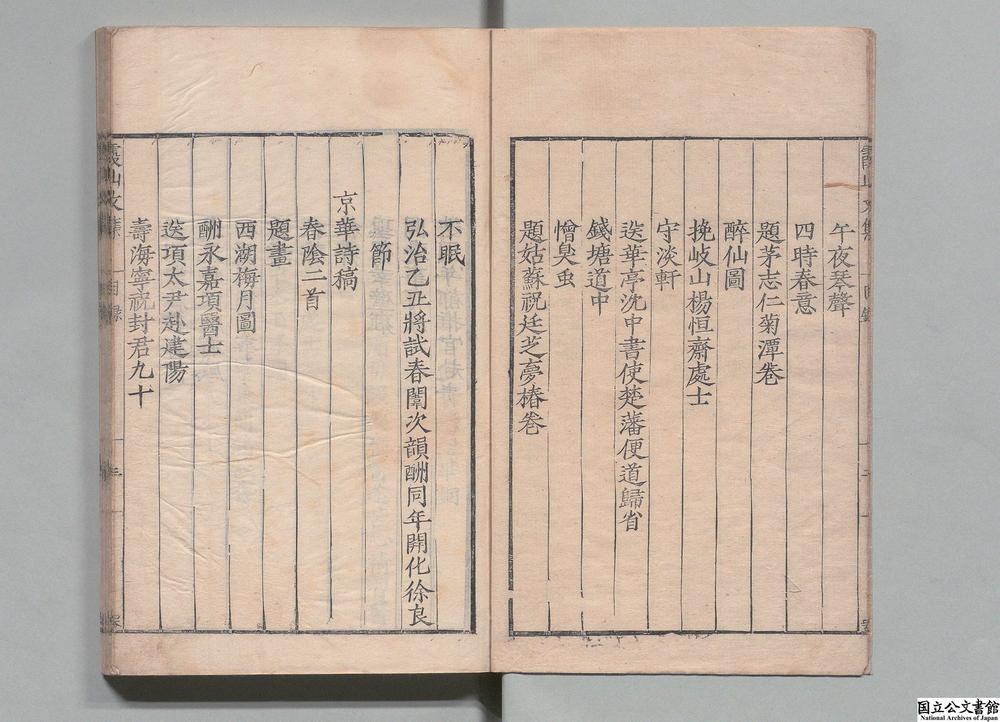 午夜琴聲
四時春意
題茅志仁菊潭卷
醉仙圖
挽岐山楊恒齋處士
守淡軒
送華亭沈中書使楚藩便道歸省
錢塘道中
憎臭虫
題姑蘇祝廷芝夢椿卷
不眠
弘治乙丑將試春闈次韻酬同年開化徐良
節
京華詩稿
春陰二首
題畫
西湖梅月圖
酬永嘉項醫士
送項太尹赴建陽
壽海寧祝封君九十
国立公文書館
National Archives of Japan